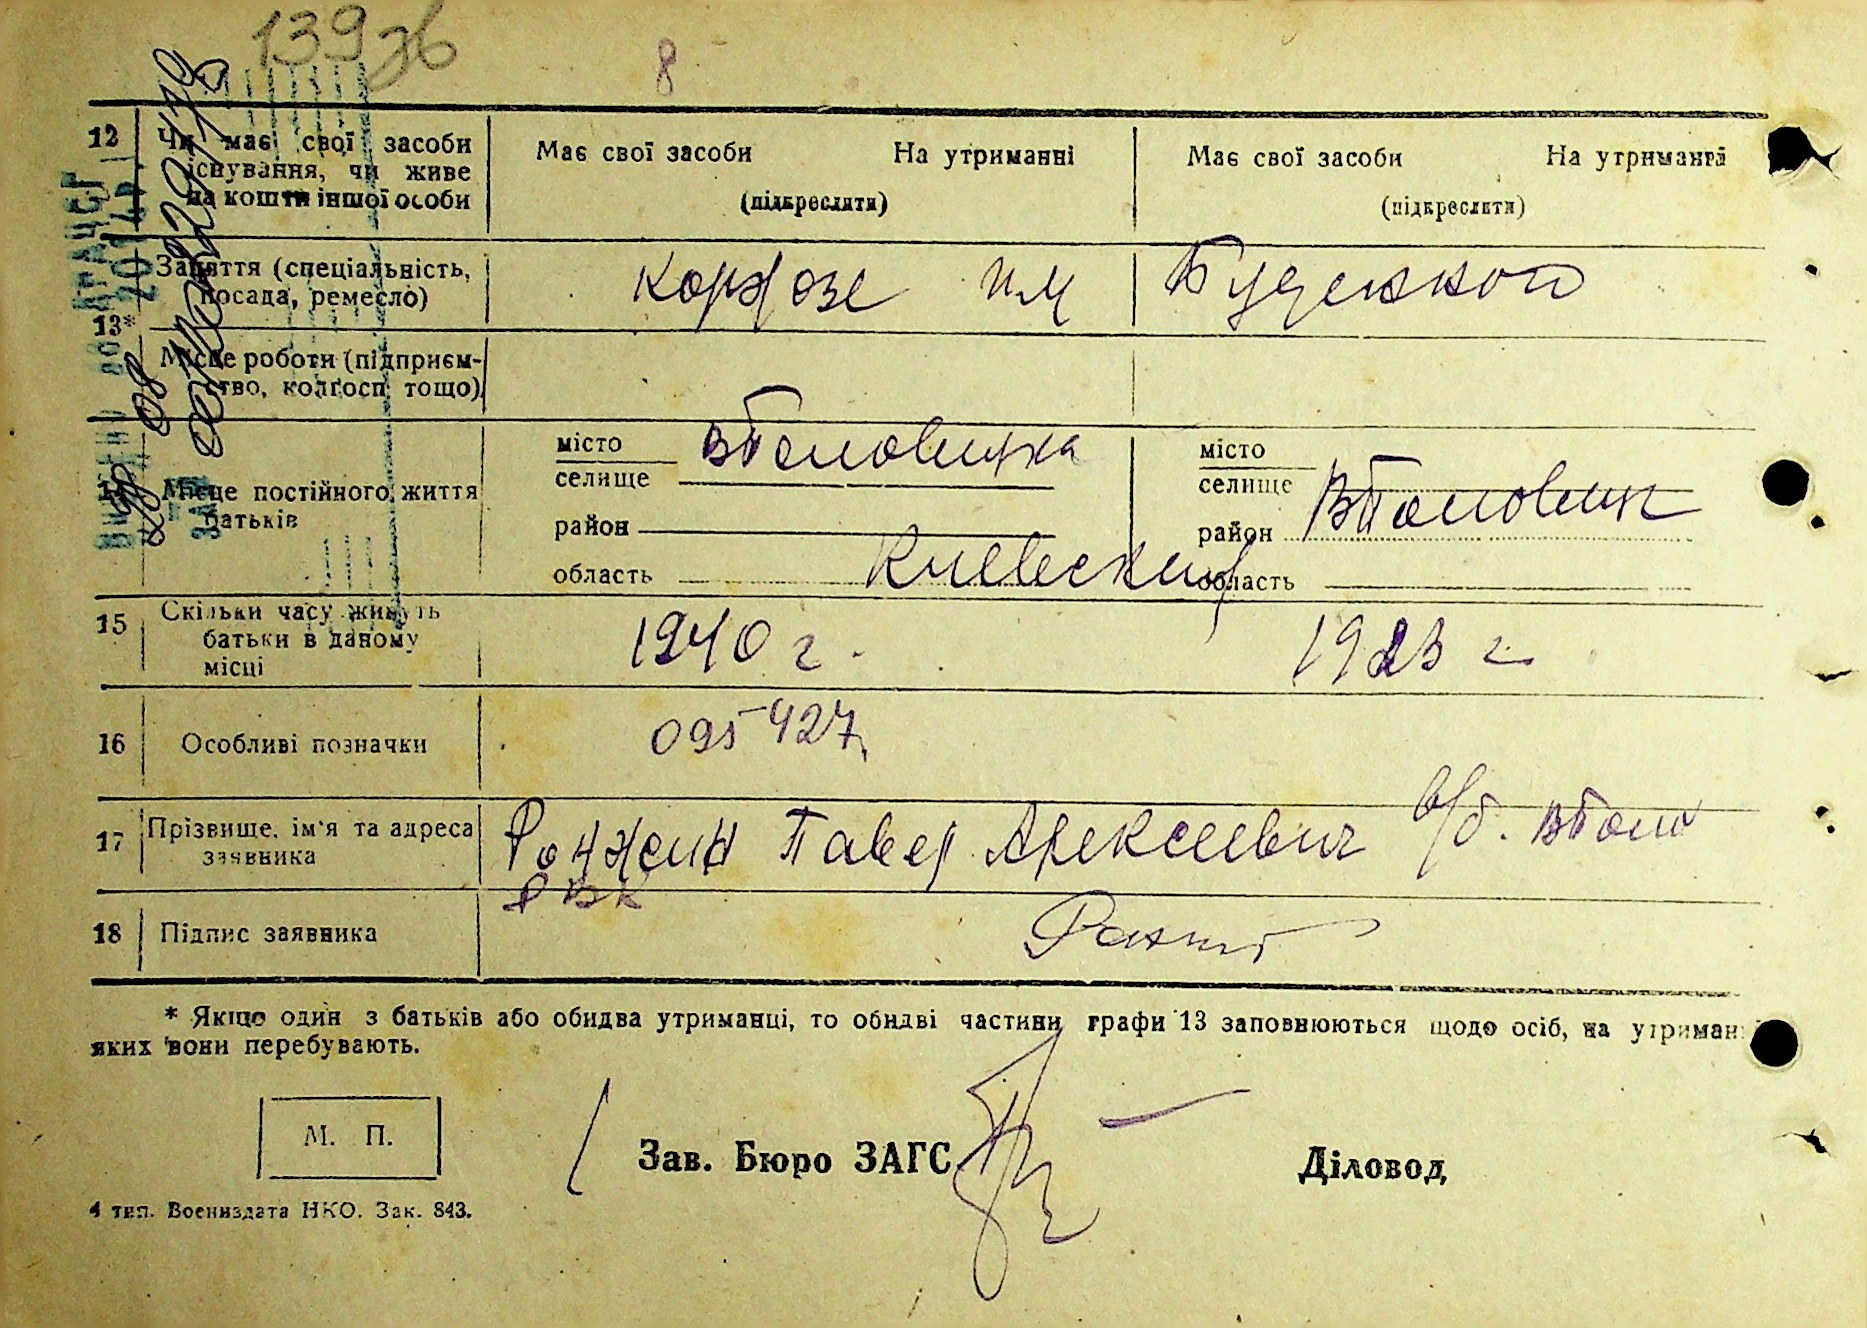 139зв
8
12 Чи має свої засоби існування, чи живе на кошти іншої особи
Має свої засоби На утриманні
(підкреслити)
Має свої засоби На утриманні
(підкреслити)
13*
Заняття (спеціальність, посада, ремесло)
им Буденного
Місце роботи (підприємство, колгосп тощо)
14 Місце постійного життя батьків
місто
селище
район
область Киевский
місто
селище
район
область
15 Скільки часу живуть батьки в даному місці
1940 г. 1923 г
16 Особливі позначки
095427
17 Прізвище, ім'я та адреса заявника
Павел Алексеевич
РВК
18 Підпис заявника
* Якщо один з батьків або обидва утриманці, то обидві частини графи 13 заповнюються щодо осіб, на утриман
яких вони перебувають.
М. П.
Зав. Бюро ЗАГС
Діловод
4 тип. Воениздата НКО. Зак. 843.